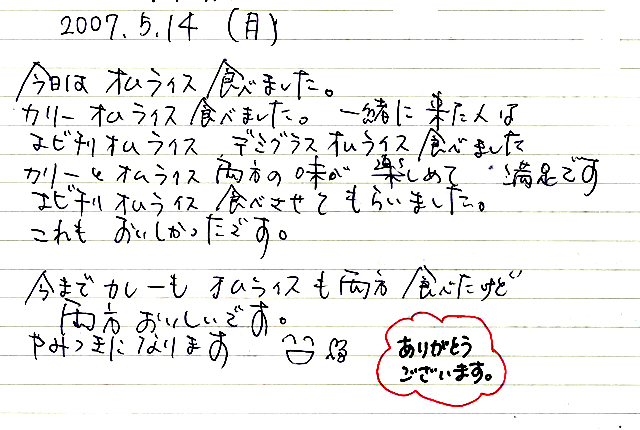 2007.5.14 (月)
今日は オムライス 食べました。
カリー オムライス 食べました。 一緒に 来た人は
エビチリオムライス デミグラスオムライス 食べました
カリーとオムライス 両方の味が 楽しめて 満足です
エビチリオムライス 食べさせて もらいました。
これも おいしかったです。
今まで カレーも オムライスも 両方 食べたけど
両方 おいしいです。
やみつきになります
ありがとう
ございます。